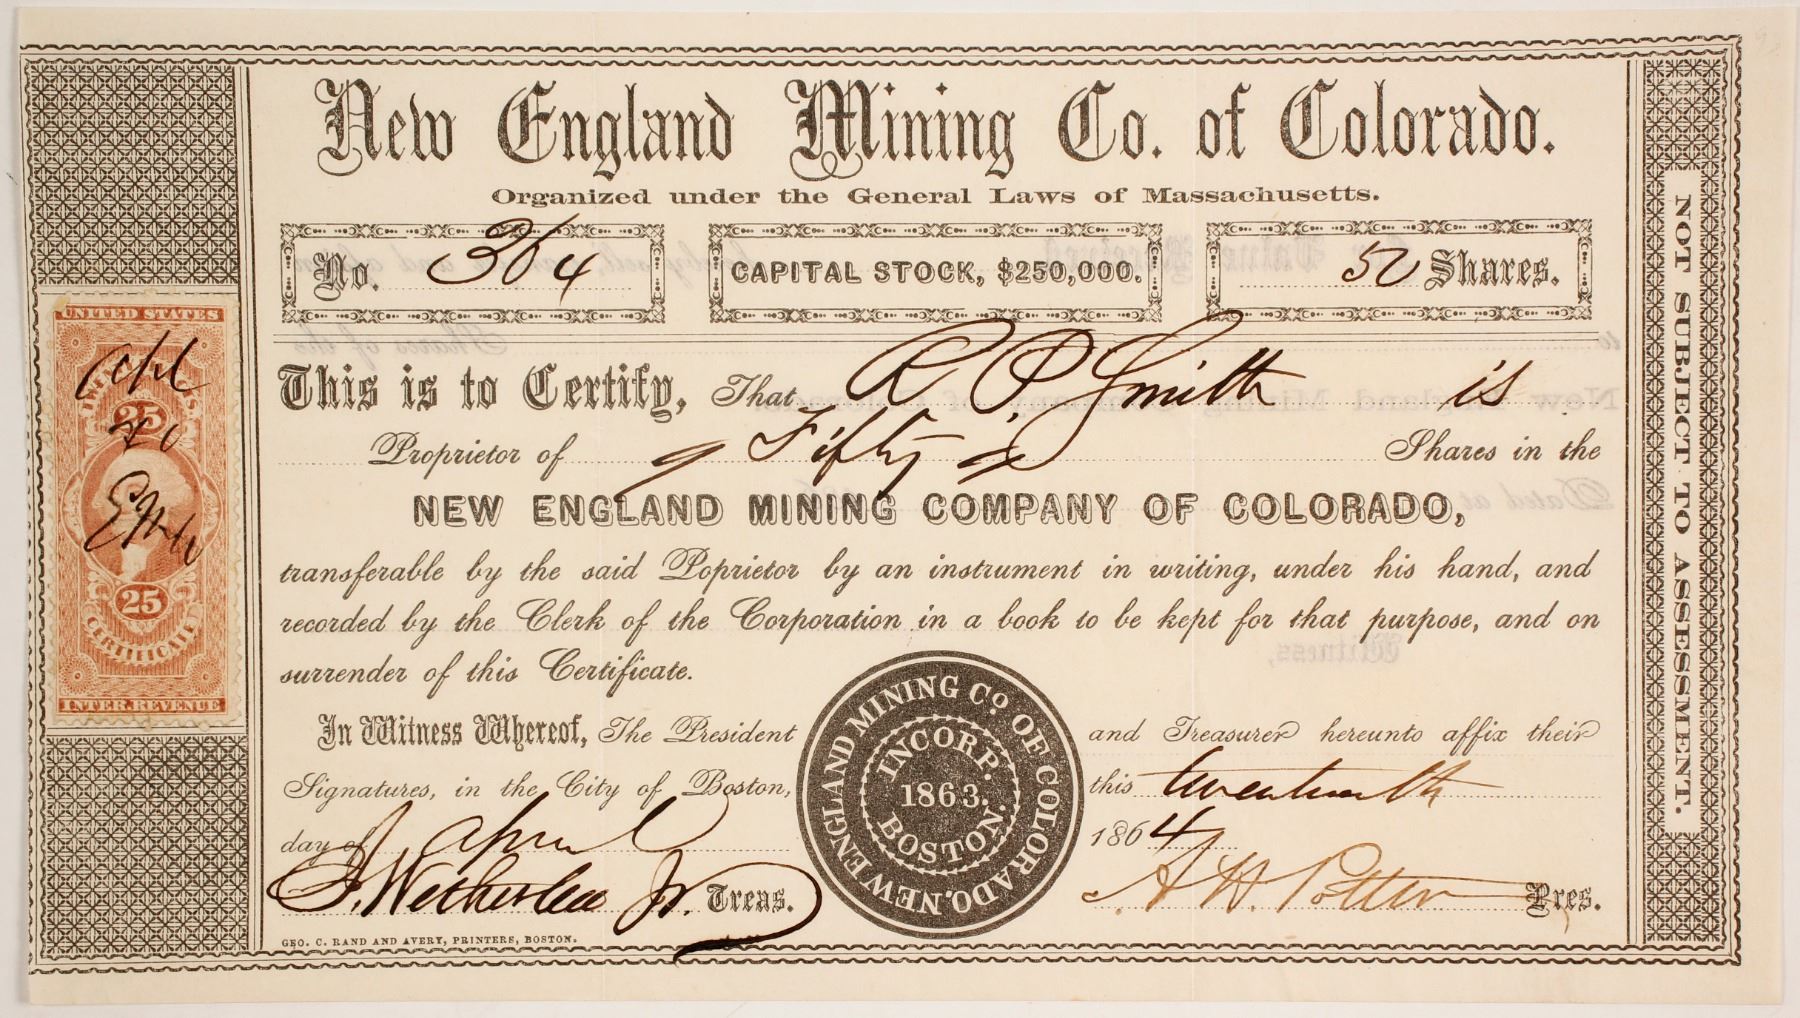 New England Mining Co. of Colorado.
Organized under the General Laws of Massachusetts.
No. 364
CAPITAL STOCK, $250,000.
50 Shares.
This is to Certify, That R. P. Smith is
Proprietor of Fifty Shares in the
NEW ENGLAND MINING COMPANY OF COLORADO,
transferable by the said Poprietor by an instrument in writing, under his hand, and
recorded by the Clerk of the Corporation in a book to be kept for that purpose, and on
surrender of this Certificate.
In Witness Whereof, The President and Treasurer hereunto affix their
Signatures, in the City of Boston, this twentieth
day of April 1864
J. Wetherbee Jr. Treas.
A. H. Potter Pres.
GEO. C. RAND AND AVERY, PRINTERS, BOSTON.
NEW ENGLAND MINING Co. OF COLORADO.
INCORP.
1863.
BOSTON.
NOT SUBJECT TO ASSESSMENT.
UNITED STATES
25
20
25
CERTIFICATE
INTER. REVENUE